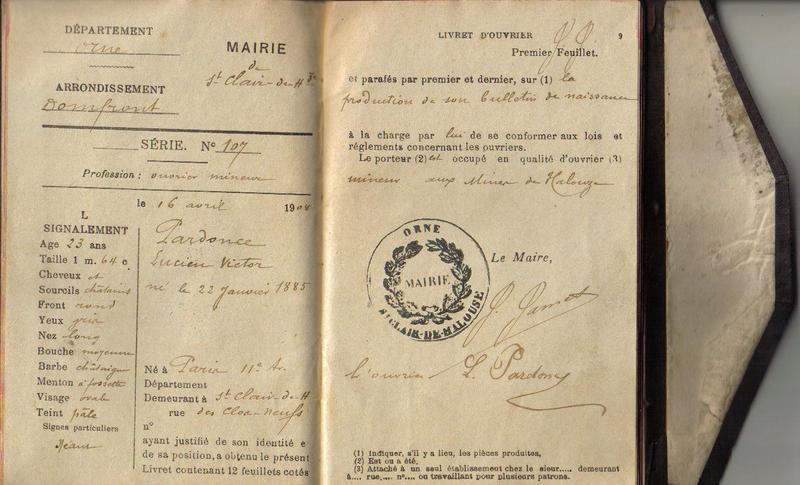 DÉPARTEMENT
Orne
MAIRIE
de
St Clair-de-H
ARRONDISSEMENT
Domfront
SÉRIE. No 107
Profession : ouvrier mineur
le 16 avril 1908
L
SIGNALEMENT
Age 23 ans
Taille 1 m. 64 c
Cheveux et
Sourcils châtains
Front rond
Yeux gris
Nez long
Bouche moyenne
Barbe châtaigne
Menton à fossette
Visage oval
Teint pâle
Signes particuliers
Néant
Pardonce
Lucien Victor
né le 22 Janvier 1885
Né à Paris 11e Ar.
Département
Demeurant à St Clair-de-H
rue des Clos-Neufs
n°
ayant justifié de son identité e
de sa position, a obtenu le présent
Livret contenant 12 feuillets cotés
LIVRET D'OUVRIER 9
Premier Feuillet.
et parafés par premier et dernier, sur (1) la
production de son bulletin de naissance
à la charge par lui de se conformer aux lois et
réglements concernant les ouvriers.
Le porteur (2) est occupé en qualité d'ouvrier (3)
mineur aux Mines de Halouze
ORNE
MAIRIE
ST CLAIR-DE-HALOUSE
Le Maire,
l'ouvrier L. Pardonce
(1) Indiquer, s'il y a lieu, les pièces produites,
(2) Est ou a été,
(3) Attaché à un seul établissement chez le sieur..... demeurant
à.... rue.... n°... ou travaillant pour plusieurs patrons.